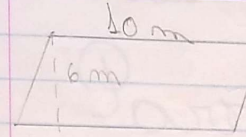 10 m
6 m